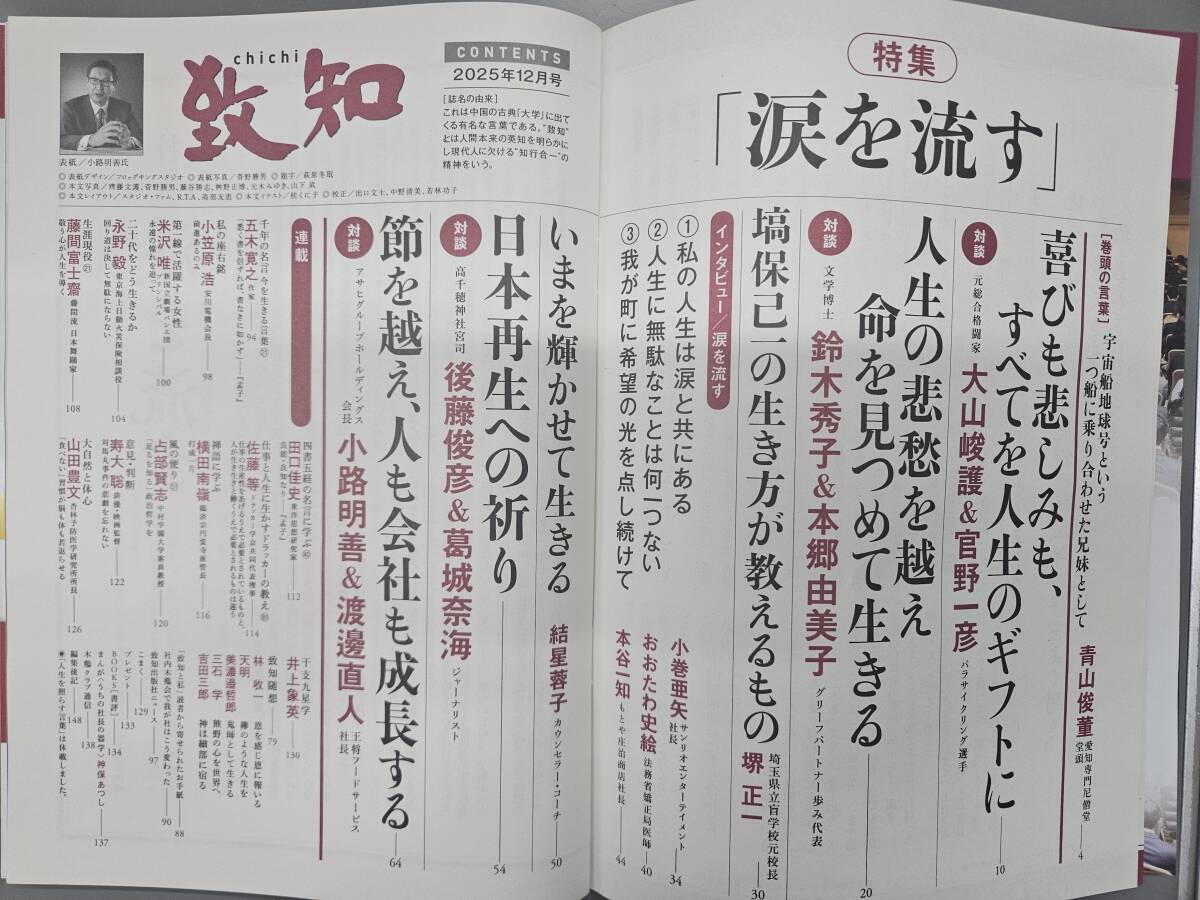 特集
「涙を流す」
[巻頭の言葉]
宇宙船地球号という
一つ船に乗り合わせた兄妹として
青山俊董
愛知専門尼僧堂
堂頭
4
喜びも悲しみも、
すべてを人生のギフトに
対談
元総合格闘家
大山峻護&官野一彦
パラサイクリング選手
10
人生の悲愁を越え
命を見つめて生きる
対談
文学博士
鈴木秀子&本郷由美子
グリーフパートナー歩み代表
20
塙保己一の生き方が教えるもの
堺 正一
埼玉県立盲学校元校長
30
インタビュー/涙を流す
①私の人生は涙と共にある
小巻亜矢
サンリオエンターテイメント
社長
34
②人生に無駄なことは何一つない
おおたわ史絵
法務省矯正局医師
40
③我が町に希望の光を点し続けて
本谷一知
もとや庄治商店社長
44
chichi
致知
CONTENTS
2025年12月号
[誌名の由来]
これは中国の古典『大学』に出て
くる有名な言葉である。“致知”
とは人間本来の英知を明らかに
し現代人に欠ける“知行合一”の
精神をいう。
表紙/小路明善氏
◎表紙デザイン/フロッグキングスタジオ ◎表紙写真/菅野勝男 ◎題字/荻原冬珉
◎本文写真/齊藤文護、菅野勝男、藤谷勝志、桝野正博、元木みゆき、山下武
◎本文レイアウト/スタジオ・ファム、R.T.A、高部友恵 ◎本文イラスト/桂くに子 ◎校正/出口文士、中野清美、若林功子
いまを輝かせて生きる
結星蓉子
カウンセラー・コーチ
50
日本再生への祈り
対談
高千穂神社宮司
後藤俊彦&葛城奈海
ジャーナリスト
54
節を越え、人も会社も成長する
対談
アサヒグループホールディングス
会長
小路明善&渡邊直人
王将フードサービス
社長
64
連載
千年の名言 今を生きる言葉㉑
五木寛之
作家
94
「悉く書を信ずれば、書なきに如かず」──『孟子』
私の座右銘
小笠原 浩
安川電機会長
98
前進あるのみ
第一線で活躍する女性
米沢 唯
新国立劇場バレエ団
プリンシパル
100
永遠の憧れを追って
二十代をどう生きるか
永野 毅
東京海上日動火災保険相談役
104
回り道は決して無駄にならない
生涯現役
藤間富士齋
藤間流 日本舞踊家
108
敬う心が人生を導く
四書五経の名言に学ぶ
田口佳史
東洋思想研究家
112
良能・良知なり──『孟子』
仕事と人生に生かすドラッカーの教え
佐藤 等
ドラッカー学会共同代表理事
114
仕事の生産性をあげるうえで必要とされているものと、
人が生き生きと働くうえで必要とされるものは違う
禅語に学ぶ
横田南嶺
臨済宗円覚寺派管長
116
打成一片
風の便り
占部賢志
中村学園大学客員教授
120
「足るを知る」政治哲学を
意見・判断
寿大 聡
俳優・映画監督
122
対馬丸事件の悲劇を忘れない
大自然と体心
山田豊文
杏林予防医学研究所所長
126
「食べない」習慣が脳も体も若返らせる
干支九星学
井上象英
130
致知随想
79
林 牧一
恩を感じ恩に報いる
天明
禅のような人生を
美濃邉哲郎
鬼師として生きる
三石 学
熊野の心を世界へ
吉田三郎
神は細部に宿る
「致知と私」読者から寄せられたお手紙
88
社内木鶏会で我が社はこう変わった
90
致知出版社ニュース
97
こまく
129
プレゼント
133
BOOKS[書評]
134
まんが〈うちの社長の器学〉神保あつし
137
木鶏クラブ通信
138
編集後記
148
◉「人生を照らす言葉」は休載しました。